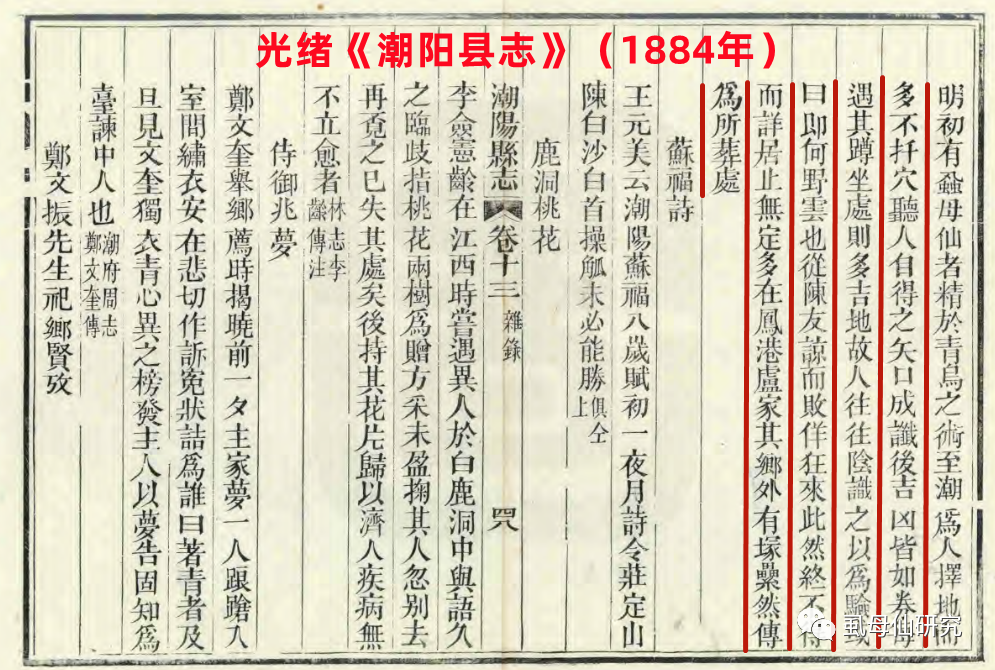 光绪《潮阳县志》（1884年）
明初有蝨母仙者精於青鳥之術至潮爲人擇地而
多不扦穴聽人自得之矢口成讖後吉凶皆如券
遇其蹲坐處則多吉地故人往往陰識之以爲驗或
曰即何野雲也從陳友諒而敗佯狂來此然終不得
而詳居止無定多在鳳港盧家其鄉外有塚纍然傳
爲所葬處
蘇福詩
王元美云潮陽蘇福八歲賦初一夜月詩令莊定山
陳白沙白首操觚未必能勝俱仝上
鹿洞桃花
潮陽縣志 卷十三 雜錄 四八
李靈憲齡在江西時嘗遇異人於白鹿洞中與語久
之臨歧指桃花兩樹爲贈方采未盈掬其人忽别去
再覓之已失其處矣後持其花片歸以濟人疾病無
不立愈者林志李齡傳注
侍御兆夢
鄭文奎舉鄉薦時揭曉前一夕主家夢一人踉蹌入
室問繡衣安在悲切作訴冤狀詰爲誰曰著青者及
旦見文奎獨衣青心異之榜發主人以夢告固知爲
臺諫中人也潮府周志鄭文奎傳
鄭文振先生祀鄉賢攷
虱母仙研究